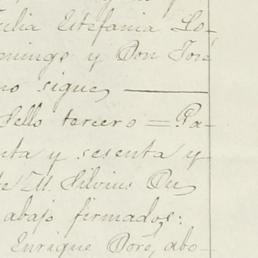 Julia Estefania Lo-
mingo y Don José
mo sigue,
Sello tercero = Pa-
nta y sesenta y
te M. Silvius Du
abajo firmados:
Enrique Doré, abo-